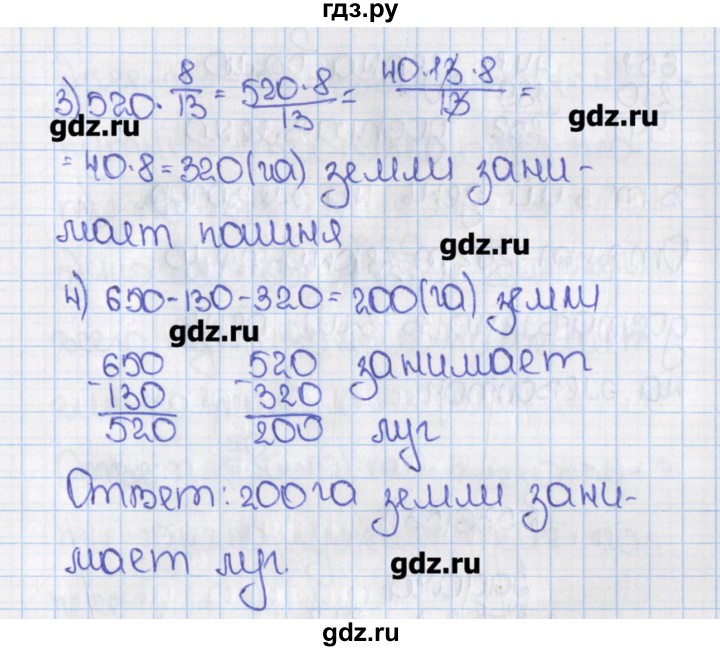 гдз.ру
3) 520 · 8/13 = 520·8/13 = 40·13·8/13 =
gdz.ru gdz.ru
= 40·8 = 320 (га) земли зани-
мает пашня gdz.ru
4) 650-130-320 = 200 (га) земли
gdz.ru
650 520 занимает
- 130 - 320
520 200 луг
Ответ: 200 га земли зани-
мает луг. gdz.ru
gdz.ru